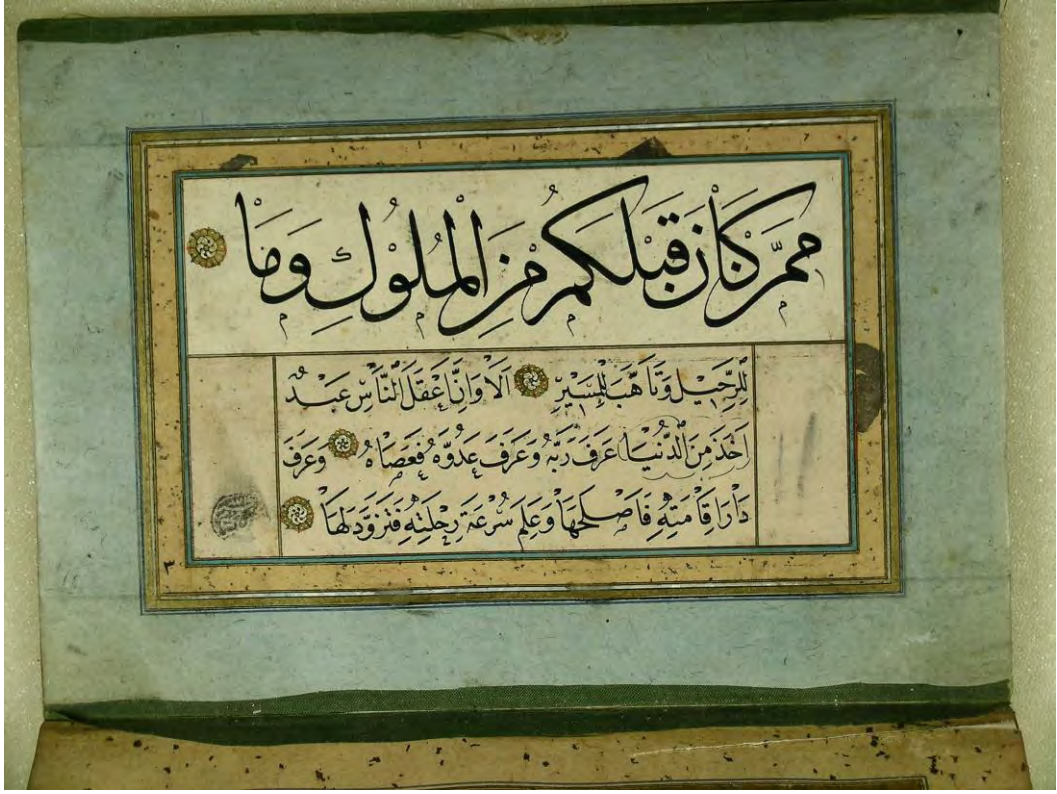 ممن كان قبلكم من الملوك وما
للرحيل وتأهب للمسير ألا وإن أعقل الناس عبد
أخذ من الدنيا عرف ربه وعرف عدوه فعصاه وعرف
دار إقامته فأصلحها وعلم سرعة رحلته فتزود لها
٣